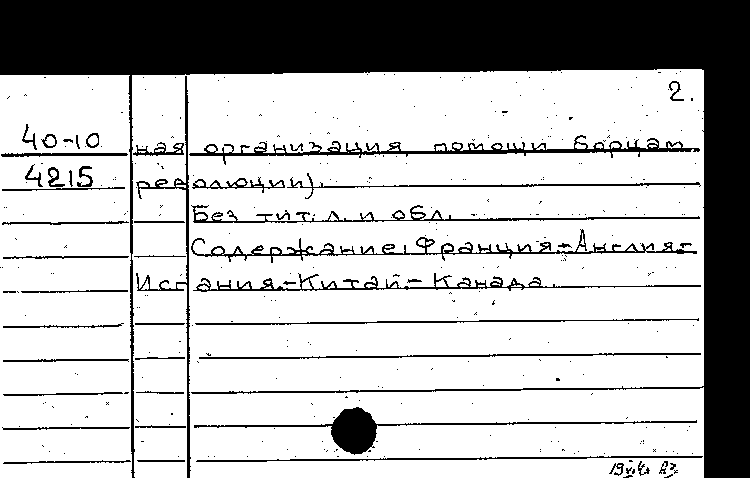 2.
40-10 ная организация помощи борцам
4215 революции).
Без тит. л. и обл.
Содержание: Франция.-Англия.-
Испания.-Китай.-Канада.